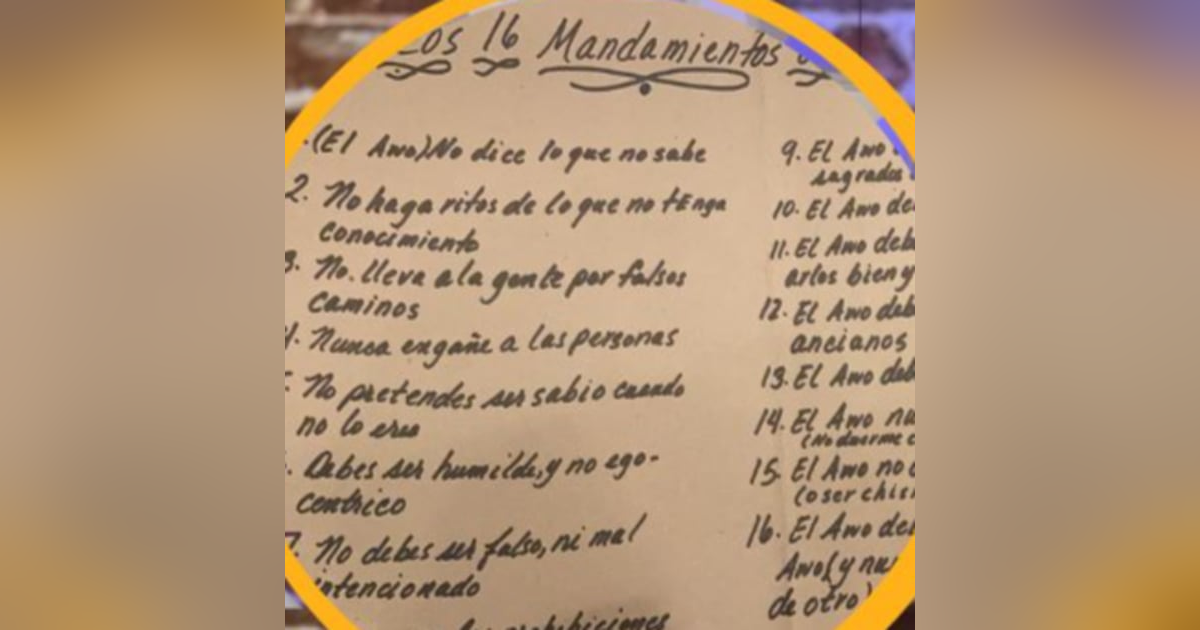 Los 16 Mandamientos
(El Awo) No dice lo que no sabe
2. No haga ritos de lo que no tEnga
conocimiento
3. No. lleva a la gente por falsos
caminos
4. Nunca engañe a las personas
No pretendes ser sabio cuando
no lo eres
. Debes ser humilde, y no ego-
centrico
7. No debes ser falso, ni mal
intencionado
prohibiciones
9. El Awo
sagrados
10. El Awo de
11. El Awo deb
arlos bien y
12. El Awo deb
ancianos
13. El Awo deb
14. El Awo nu
(No duerme c
15. El Awo no
(o ser chis
16. El Awo de
Awo(y nu
de otro)